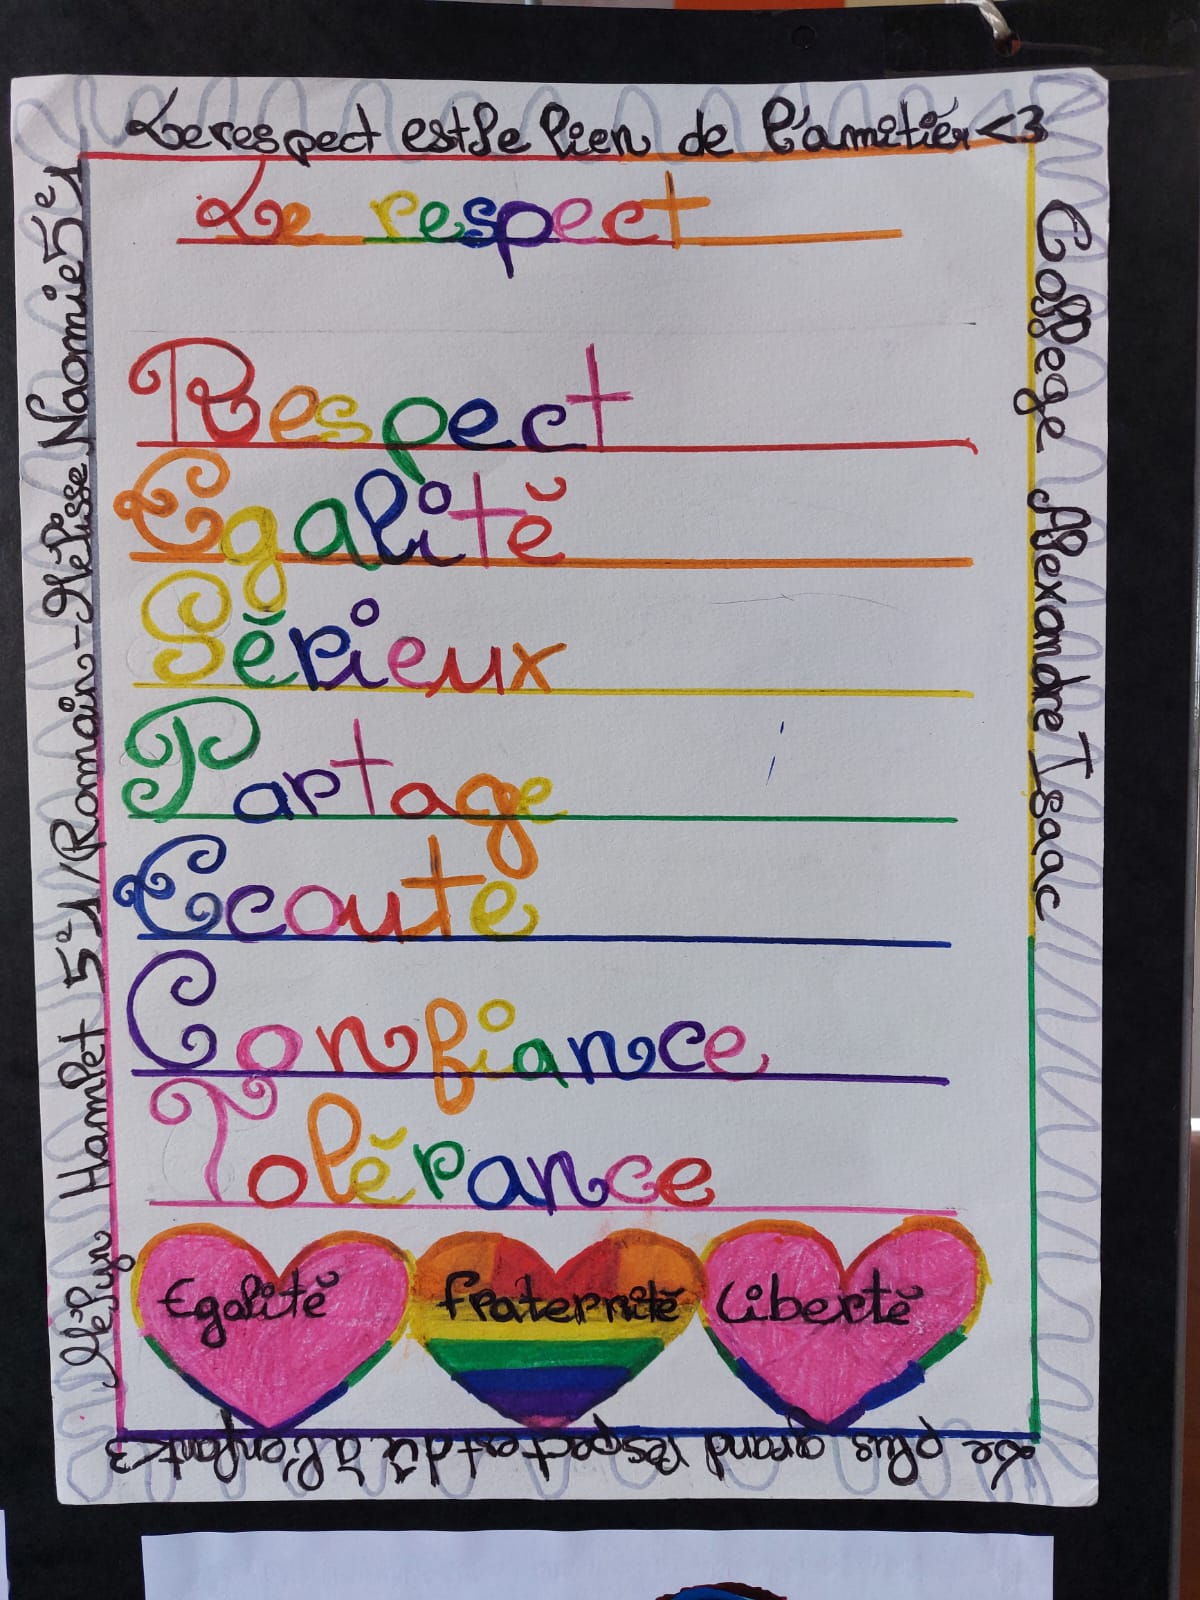 Le respect est le lien de l'amitiér <3
Le respect
Respect
Egalité
Sérieux
Partage
Ecoute
Confiance
Tolérance
Egalité
fraternité
Liberté
College Alexandre Isaac
Le plus grand respect est dû à l'enfant <3
Mélyn Hamlet 5e1/Romain-Mélisse Naomie 5e1